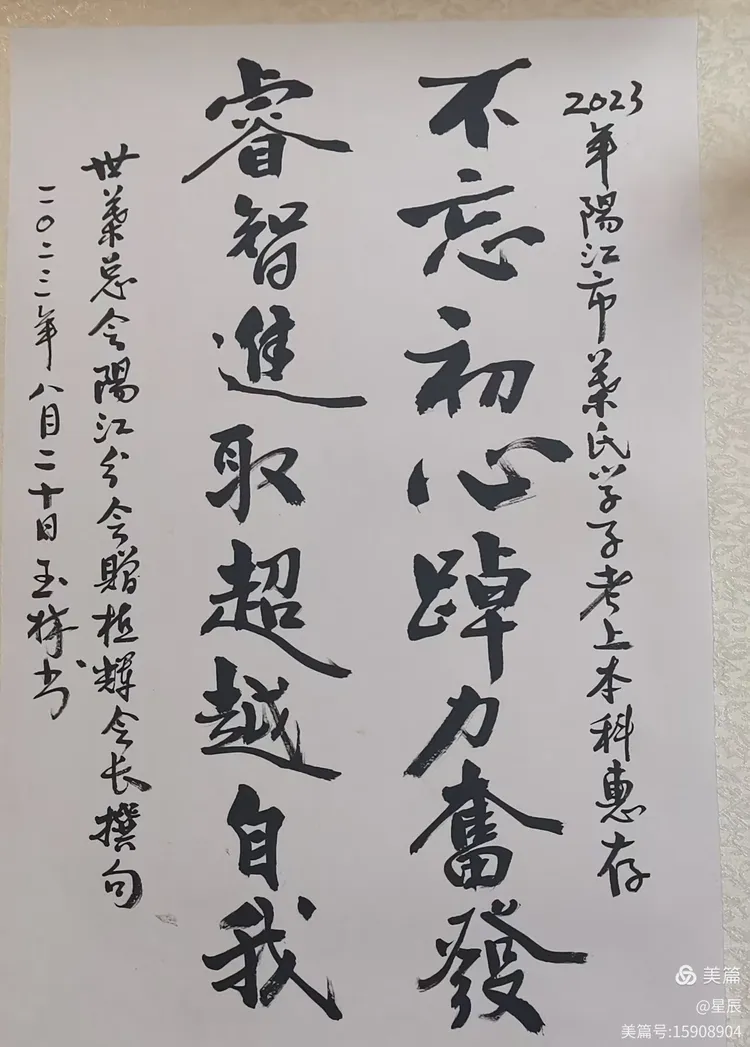 2023年陽江市葉氏学子考上本科惠存
不忘初心踔力奮發
睿智進取超越自我
世葉总会陽江分会贈植輝会长撰句
二〇二三年八月二十日玉 书
美篇
@星辰
美篇号:15908904